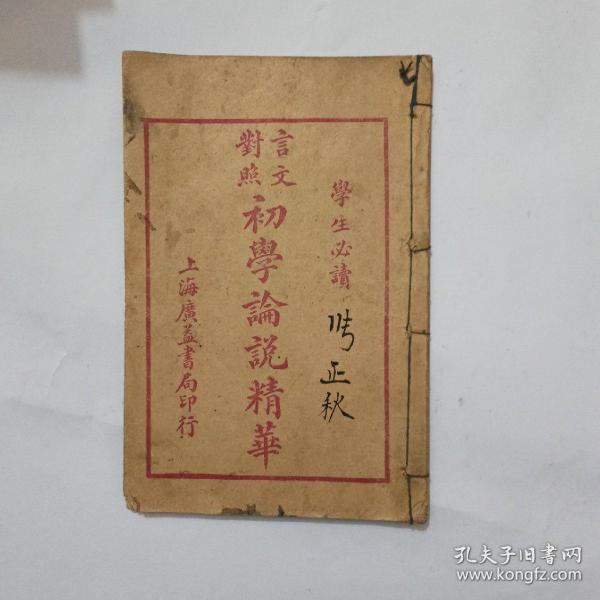 學生必讀
正秋
言文
對照
初學論説精華
上海廣益書局印行
孔夫子旧书网
www.kongfz.com